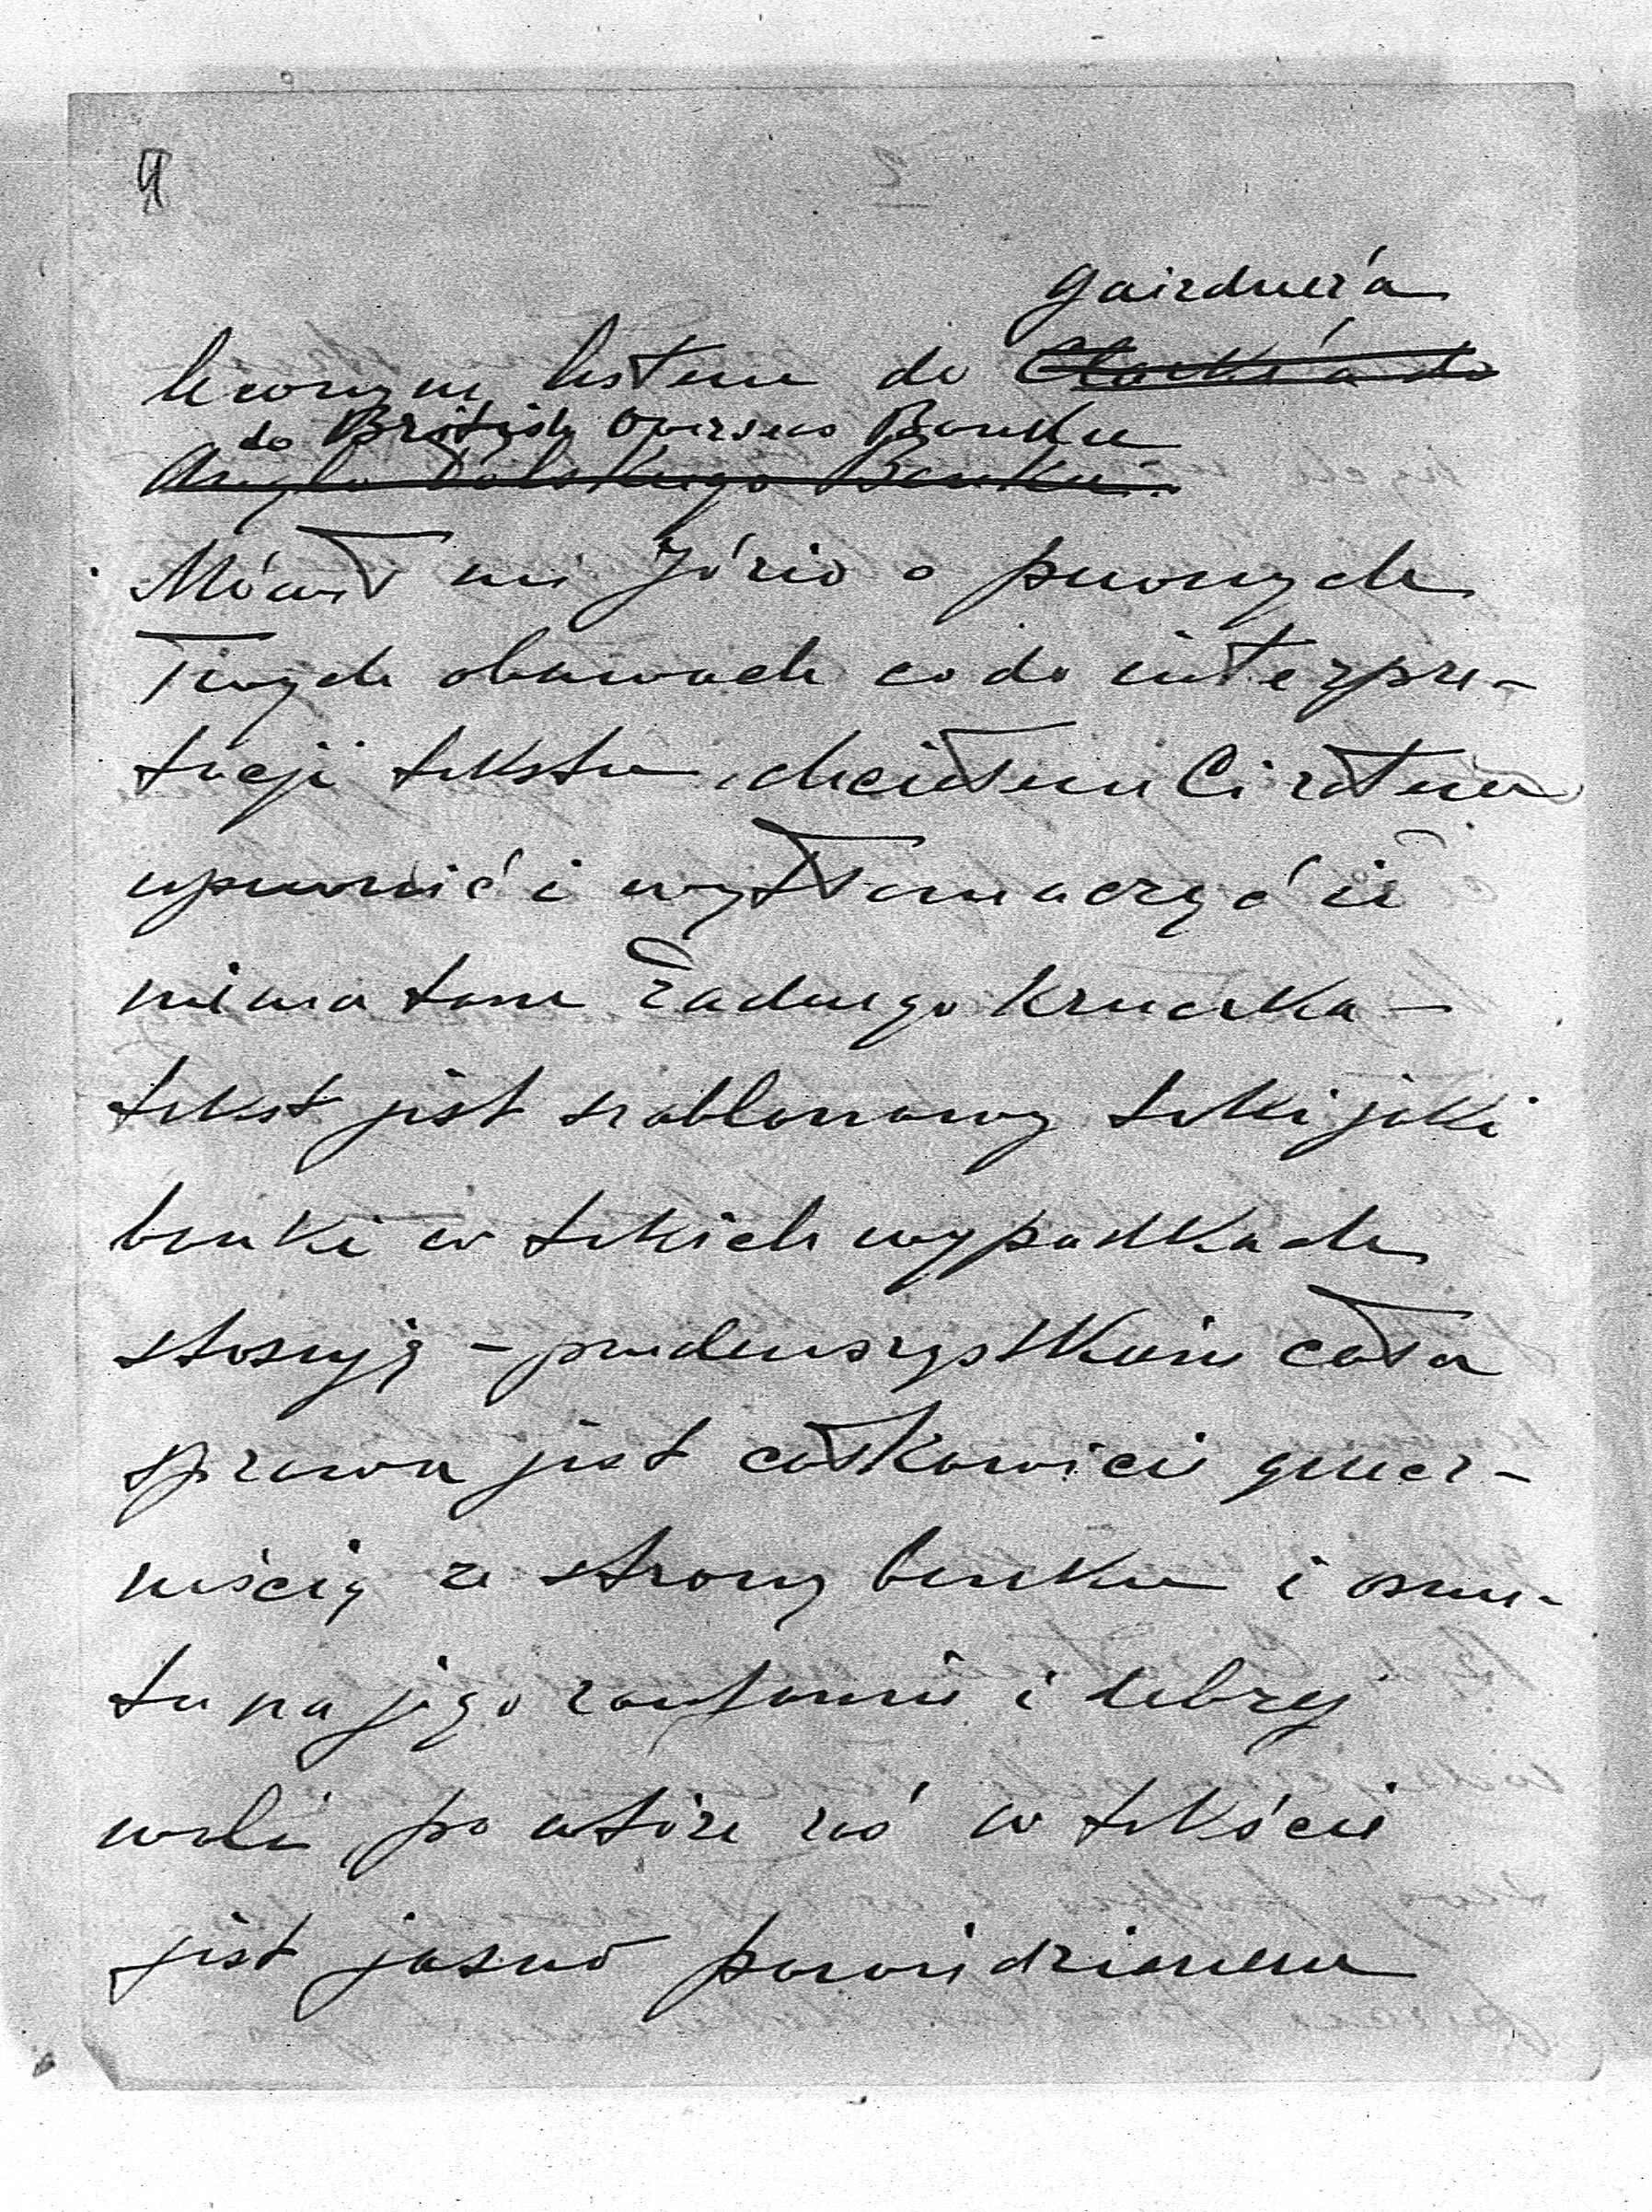 gairdner'a
lecozym listem do ~~Clark'a do~~
do British Overseas Banku
~~Anglo Polskiego Banku.~~
Mówił mi Józio o pewnych
Twych obawach co do interpre-
tacji tekstu, chciałem Ci zatem
upewnić i wytłomaczyć iż
niema tam żadnego kruczka —
tekst jest szablonowy taki jaki
banki w takich wypadkach
stosują – przedewszystkiem cała
sprawa jest całkowicie grzecz-
nością ze strony banku i opar-
ta na jego zaufaniu i dobrej
woli, po wtóre zaś w tekście
jest jasno powiedzianem